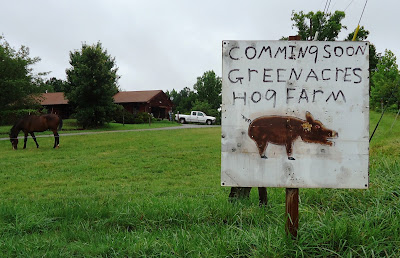 COMMING SOON
GREENACRES
HOG FARM